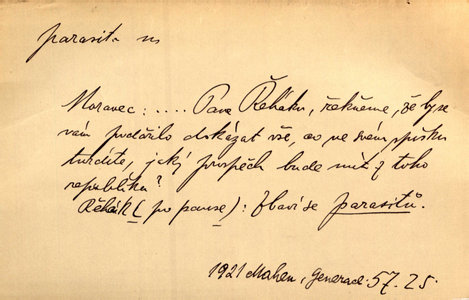 parasit m
Moravec: .... Pane Řeháku, řekněme, že by se
vám podařilo dokázat vše, co ve svém spisku
tvrdíte, jaký prospěch bude mít z toho
republika?
Řehák (po pause): Zbaví se parasitů.
1921 Mahen, Generace 57. 25.